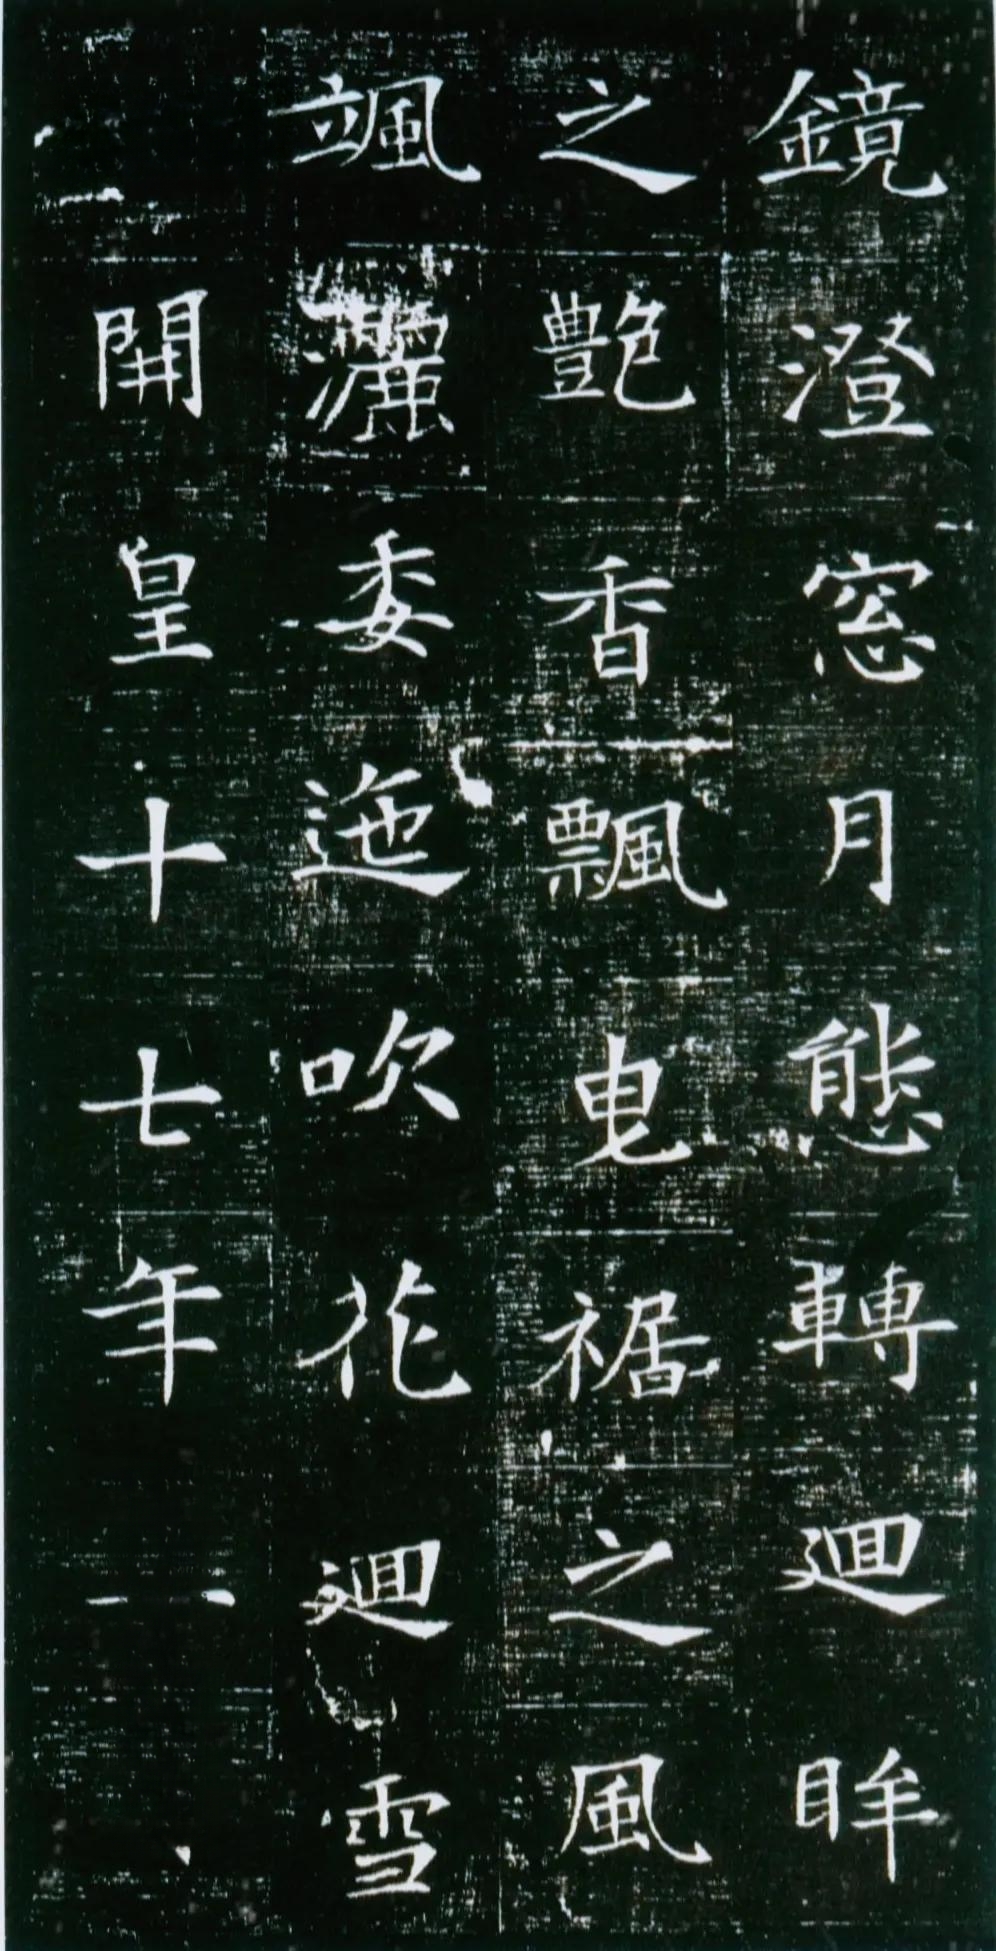 鏡澄窓月態轉迴眸
之艷香飄电裾之風
颯灑委迤吹花迴雪
開皇十七年一